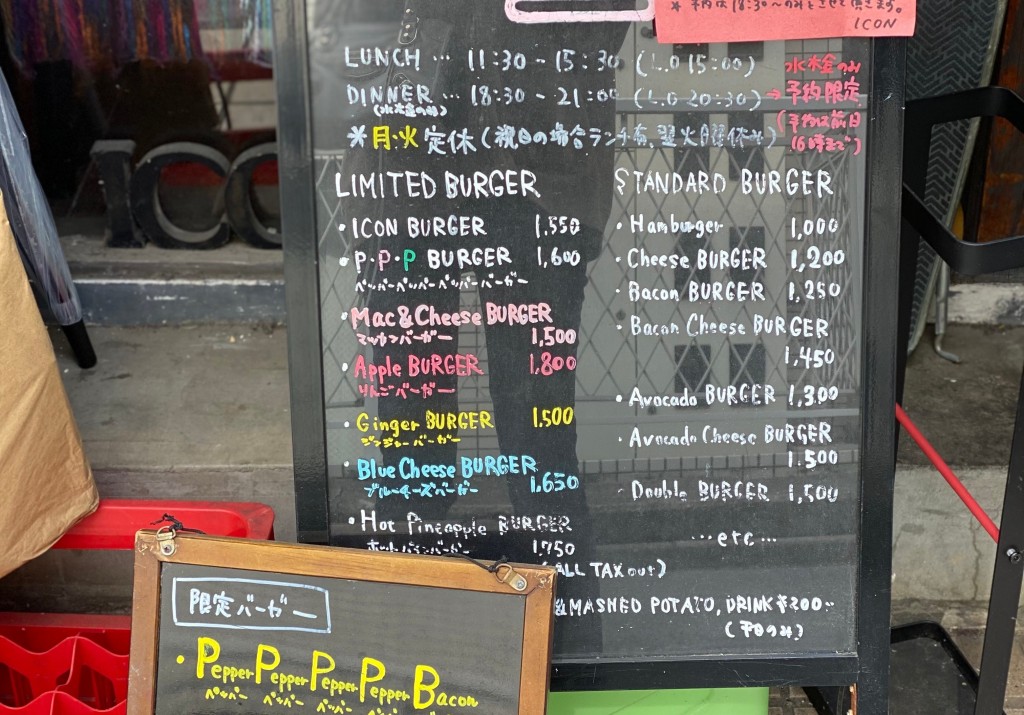 *予約は18:30〜のみとさせて頂きます。
ICON
LUNCH … 11:30 - 15:30 (L.O 15:00)
DINNER … 18:30 - 21:00 (L.O 20:30) → 予約限定
(水木金のみ)
水木金のみ
(予約は前日
16時まで)
*月・火 定休(祝日の場合ランチ有、翌火曜休み)
ICO
LIMITED BURGER
・ICON BURGER 1,550
・P・P・P BURGER 1,600
ペッパーペッパーペッパーバーガー
・Mac&Cheese BURGER
マッケンバーガー 1,500
・Apple BURGER 1,800
りんごバーガー
・Ginger BURGER 1,500
ジンジャーバーガー
・Blue Cheese BURGER
ブルーチーズバーガー 1,650
・Hot Pineapple BURGER
ホットパインバーガー 1,750
STANDARD BURGER
・Hamburger 1,000
・Cheese BURGER 1,200
・Bacon BURGER 1,250
・Bacon Cheese BURGER
1,450
・Avocado BURGER 1,300
・Avocado Cheese BURGER
1,500
・Double BURGER 1,500
…etc…
(ALL TAX out)
&MASHED POTATO, DRINK ¥200-
(平日のみ)
限定バーガー
・Pepper Pepper Pepper Pepper Bacon
ペッパー ペッパー ペッパー